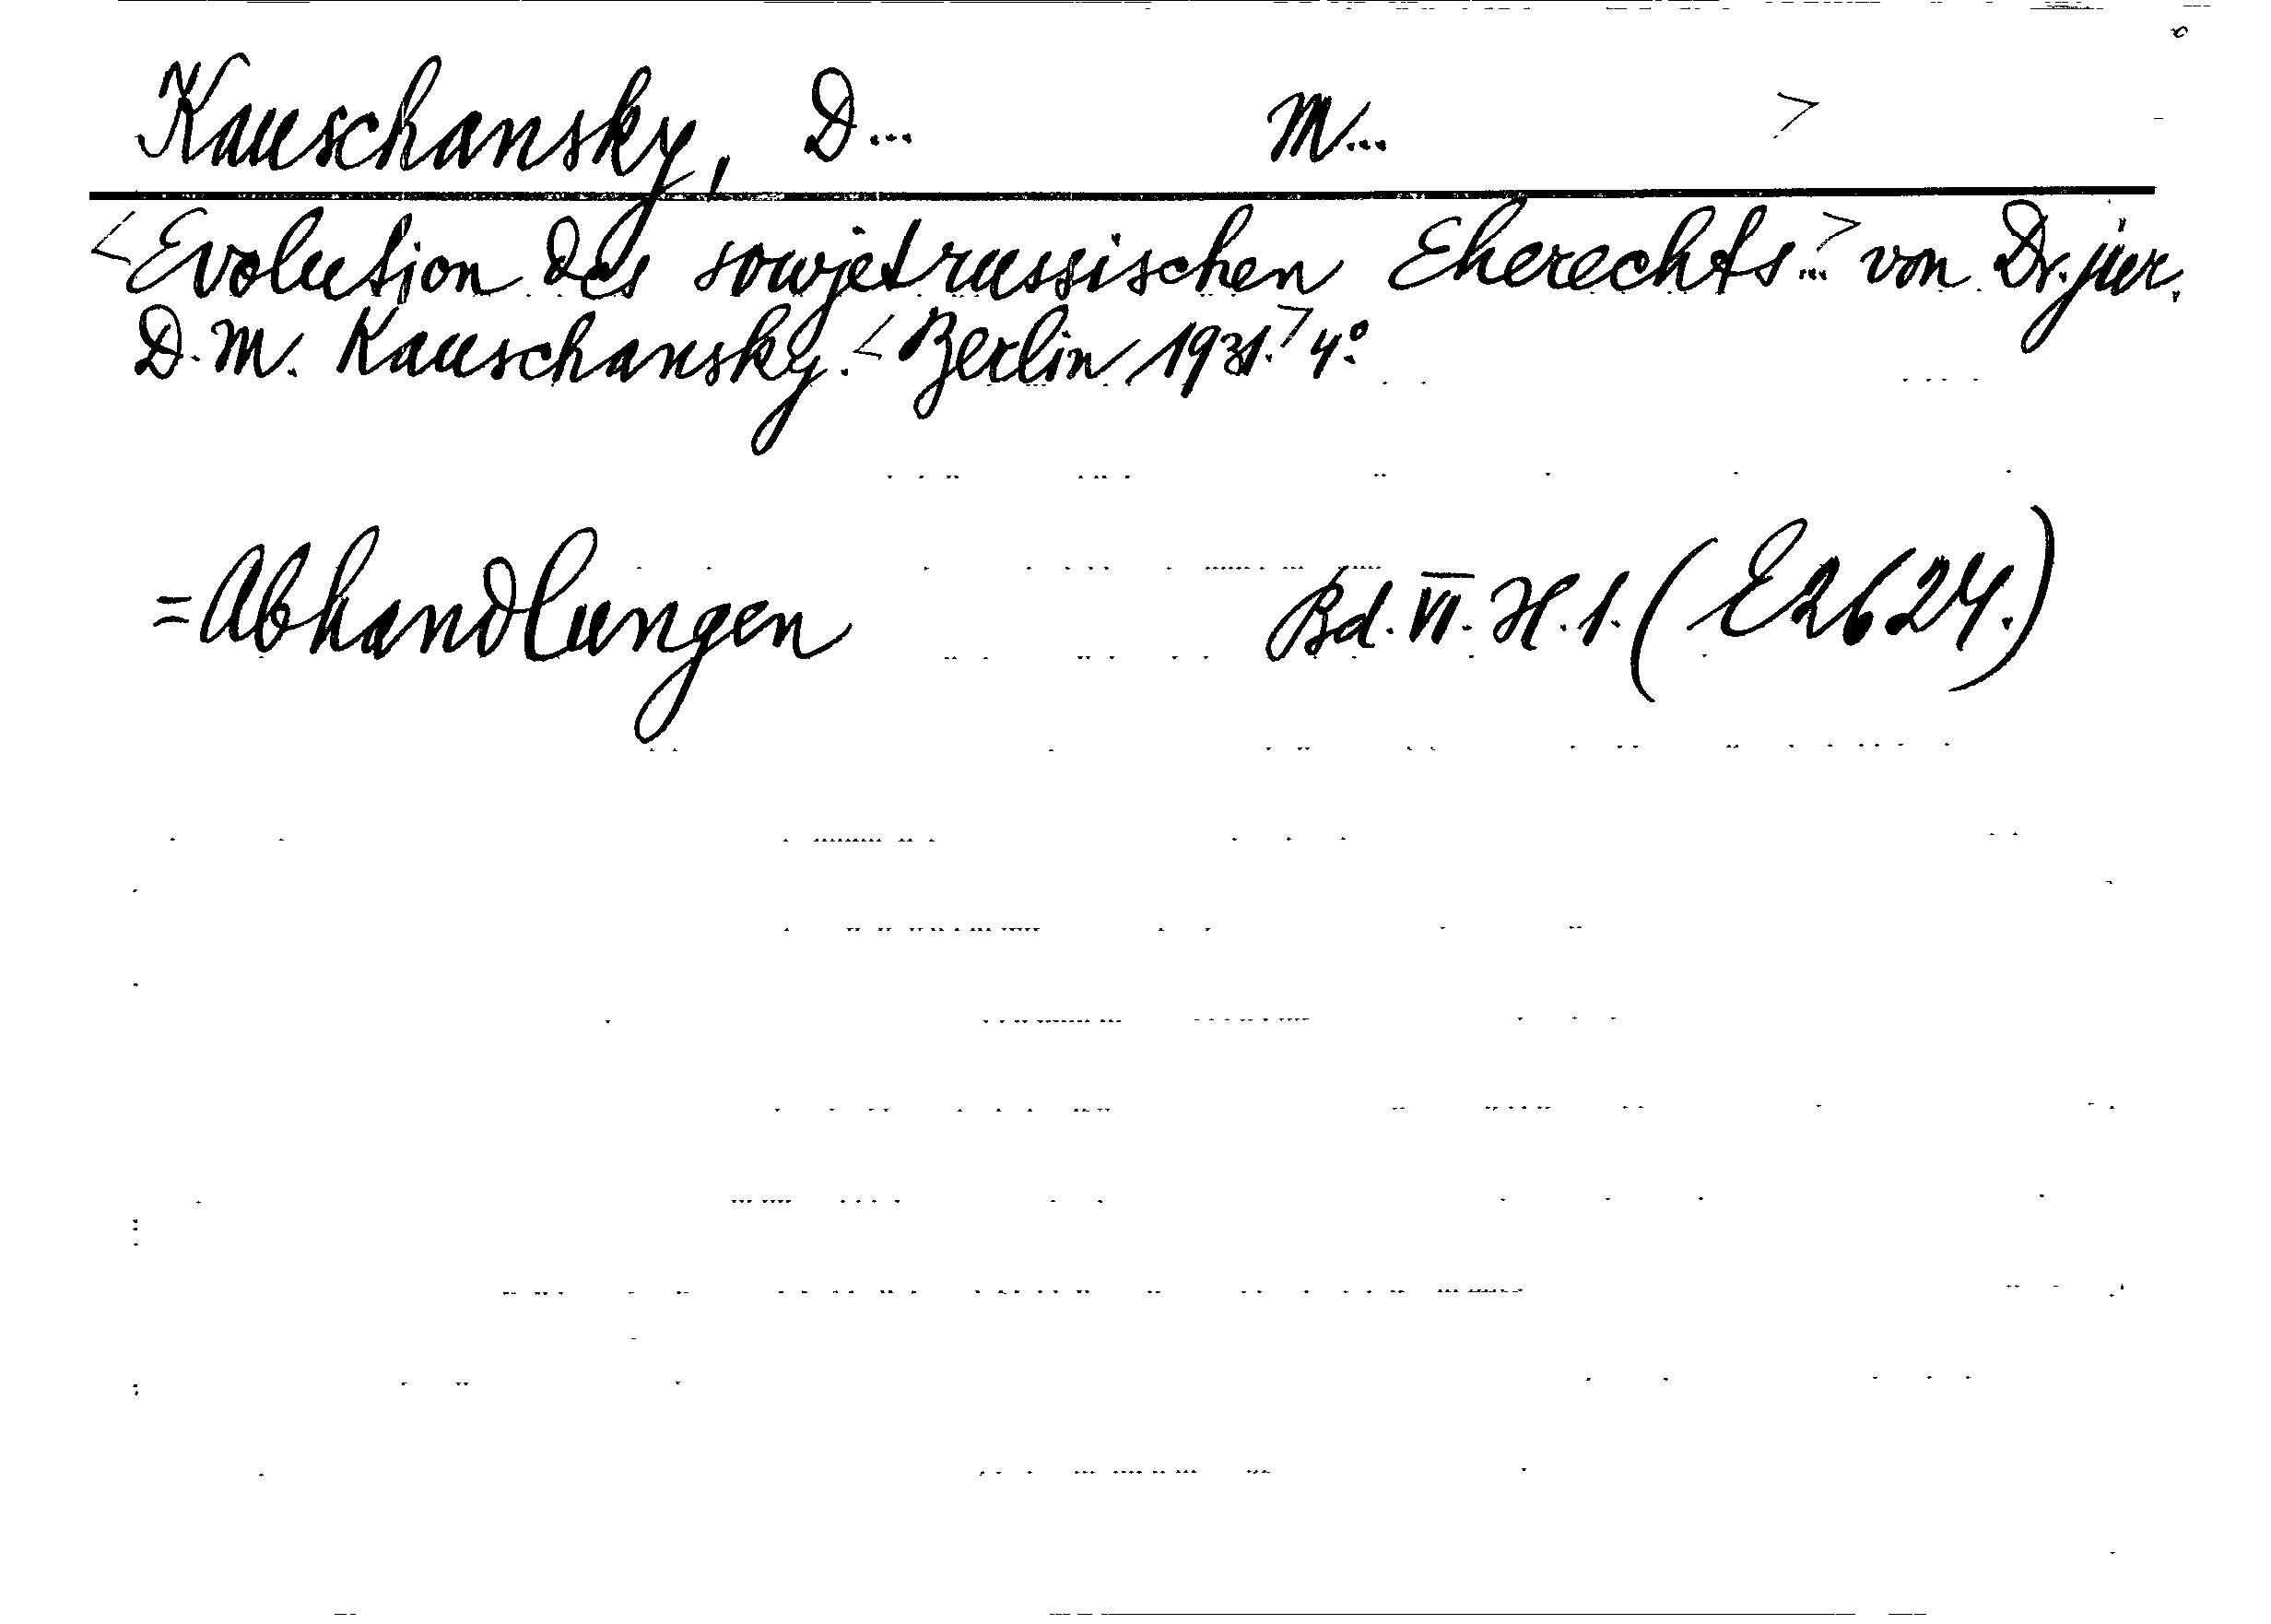 Kauschansky, D... M... >
<Evolution des sowjetrussischen Eherechts...> von Dr. jur.
D. M. Kauschansky. <Berlin 1931.> 4°.
= Abhandlungen Bd. VI. H. 1. (E2624.)